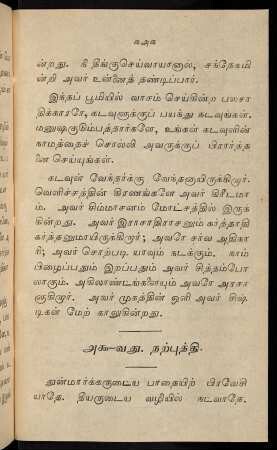 ௧அ௧
ன்றது. நீ தீங்குசெய்வாயானால், சந்தேகமி
ன்றி அவர் உன்னைத் தண்டிப்பார்.
இந்தப் பூமியில் வாசம் செய்கின்ற பலசா
திக்காரரே, கடவுளுக்குப் பயந்து கடவுங்கள்.
மனுஷகுடும்பத்தார்களே, உங்கள் கடவுளின்
நாமத்தைச் சொல்லி அவருக்குப் பிரார்த்த
னை செய்யுங்கள்.
கடவுள் வேந்தர்க்கு வேந்தனாயிருக்கிறார்.
வெளிச்சத்தின் கிரணங்களே அவர் கிரீடமா
ம். அவர் சிம்மாசனம் மோட்சத்தில் இருக்
கின்றது. அவர் இராசாதிராசனும் கர்த்தாதி
கர்த்தனுமாயிருக்கிறார்; அவரே சர்வ அதிகா
ரி; அவர் சொற்படி யாவும் நடக்கும். நாம்
பிழைப்பதும் இறப்பதும் அவர் சித்தம்போ
லாகும். அகிலாண்டங்களையும் அவரே அரசா
ளுகிறார். அவர் முகத்தின் ஒளி அவர் சிஷ்
டிகள் மேற் காலுகின்றது.
அ௬-வது. நற்புத்தி.
துன்மார்க்கருடைய பாதையிற் பிரவேசி
யாதே. தீயருடைய வழியில் நடவாதே.